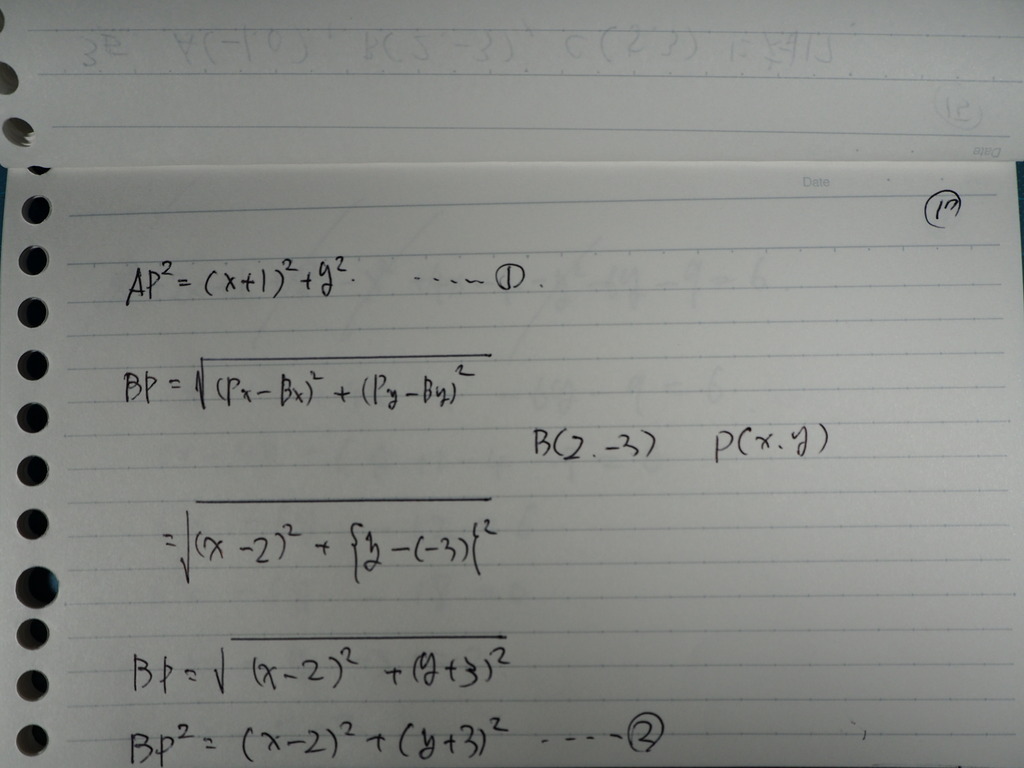 Date
⑰
AP² = (x+1)² + y². ····-- ①.
BP = √(Px-Bx)² + (Py-By)²
B(2.-3) P(x.y)
= √(x-2)² + {y-(-3)}²
BP = √(x-2)² + (y+3)²
BP² = (x-2)² + (y+3)² ----- ②